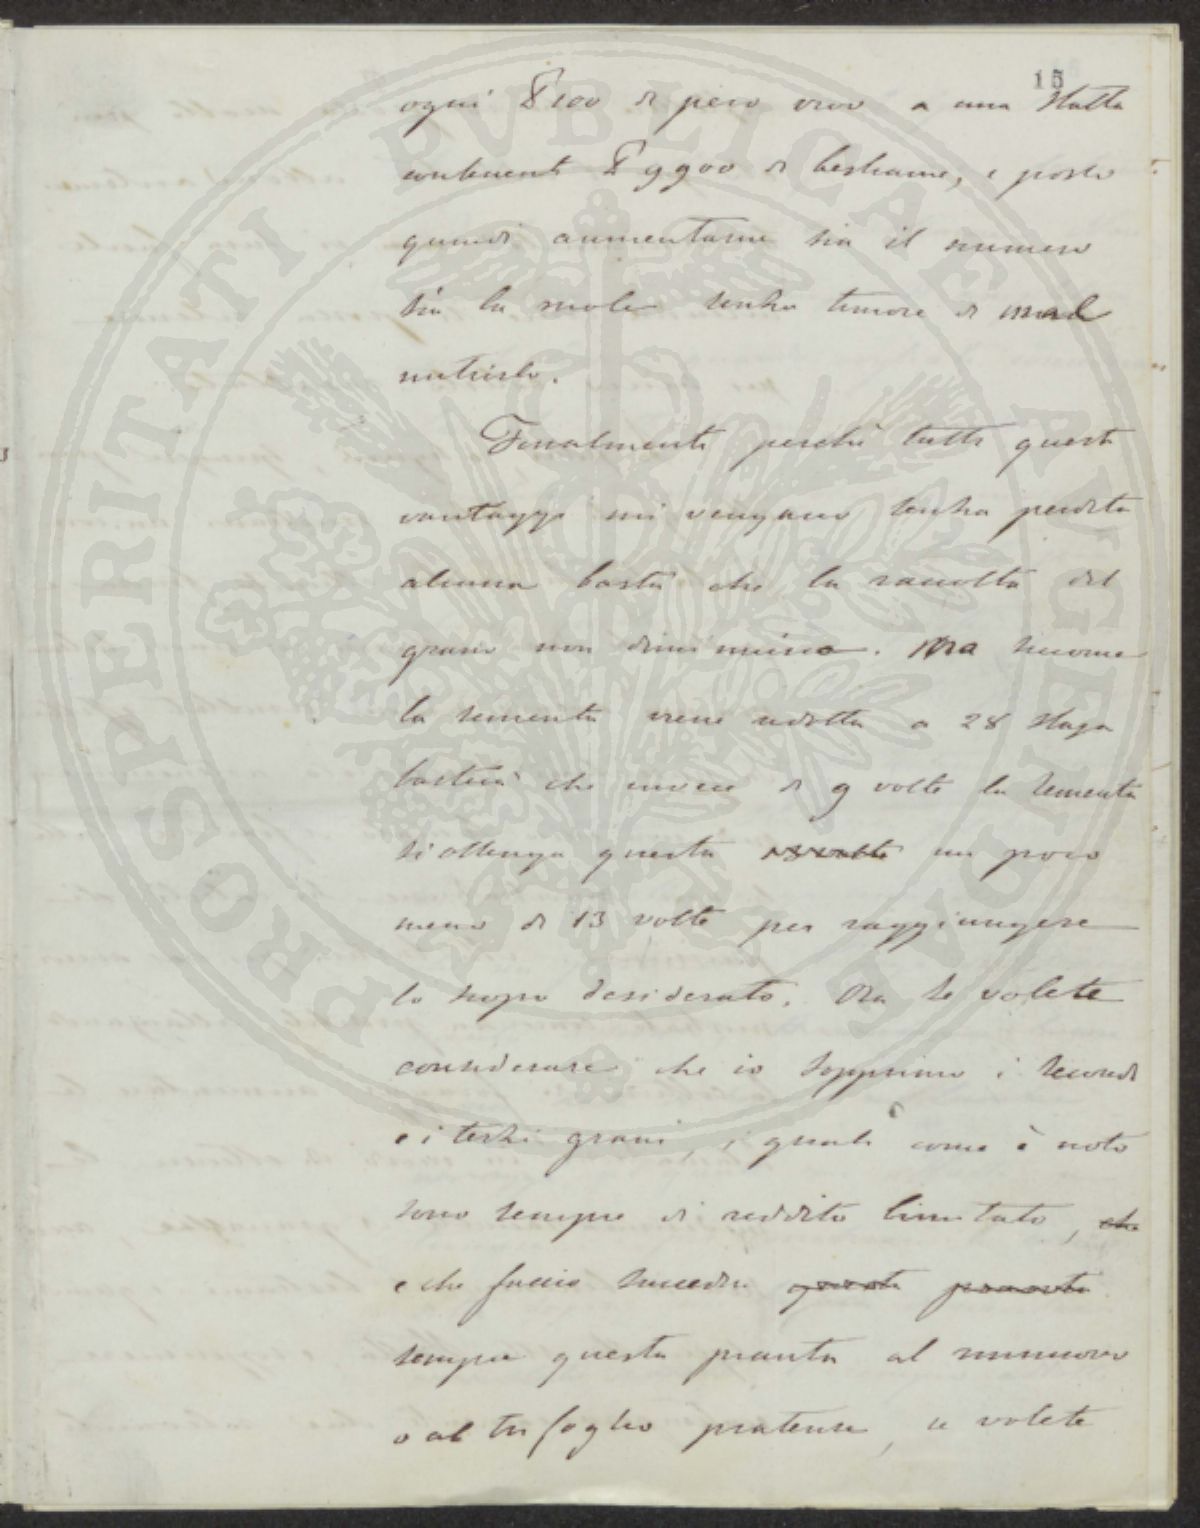 15
ogni ℔ 100 di peso vivo a una stalla
contenente ℔ 9900 di bestiame, e posso
quindi aumentarne sia il numero
sia la mole senza timore di mal
nutrirlo.
Finalmente perchè tutti questi
vantaggi mi vengano senza perdita
alcuna basta che la raccolta del
grano non diminuisca. Ma siccome
la sementa viene ridotta a 28 staja
basterà che invece di 9 volte la sementa
si ottenga questa un poco
meno di 13 volte per raggiungere
lo scopo desiderato. Ora se volete
considerare che io sopprimo i secondi
e i terzi grani, i quali come è noto
sono sempre di reddito limitato, che
e che faccio succedere questa pianta
sempre questa pianta al
o al trifoglio pratense, se volete
PROSPERITATI PUBLICAE AUGENDAE